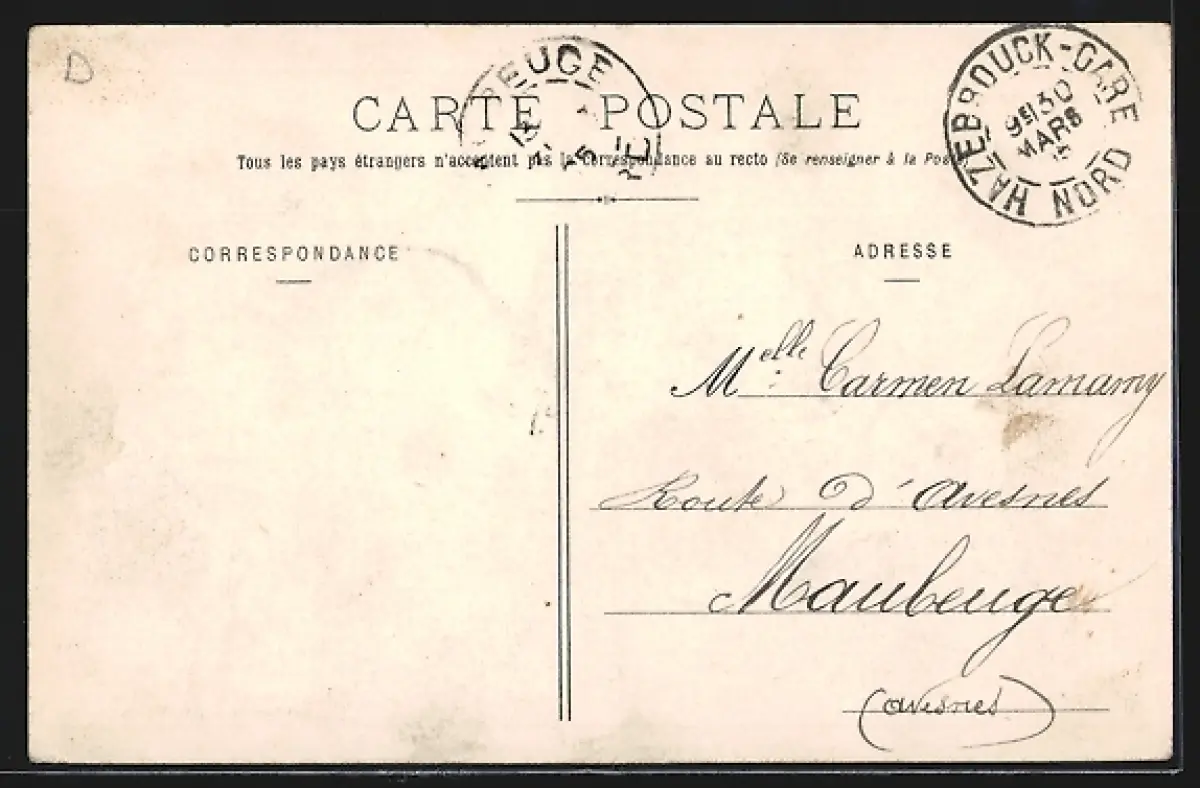 D
EUGE
CARTE POSTALE
Tous les pays étrangers n'acceptent pas la correspondance au recto (Se renseigner à la Poste)
HAZEBROUCK-GARE
30
MARS
NORD
CORRESPONDANCE
ADRESSE
Melle Carmen Lamamy
Route d'avesnes
Maubeuge
(avesnes)